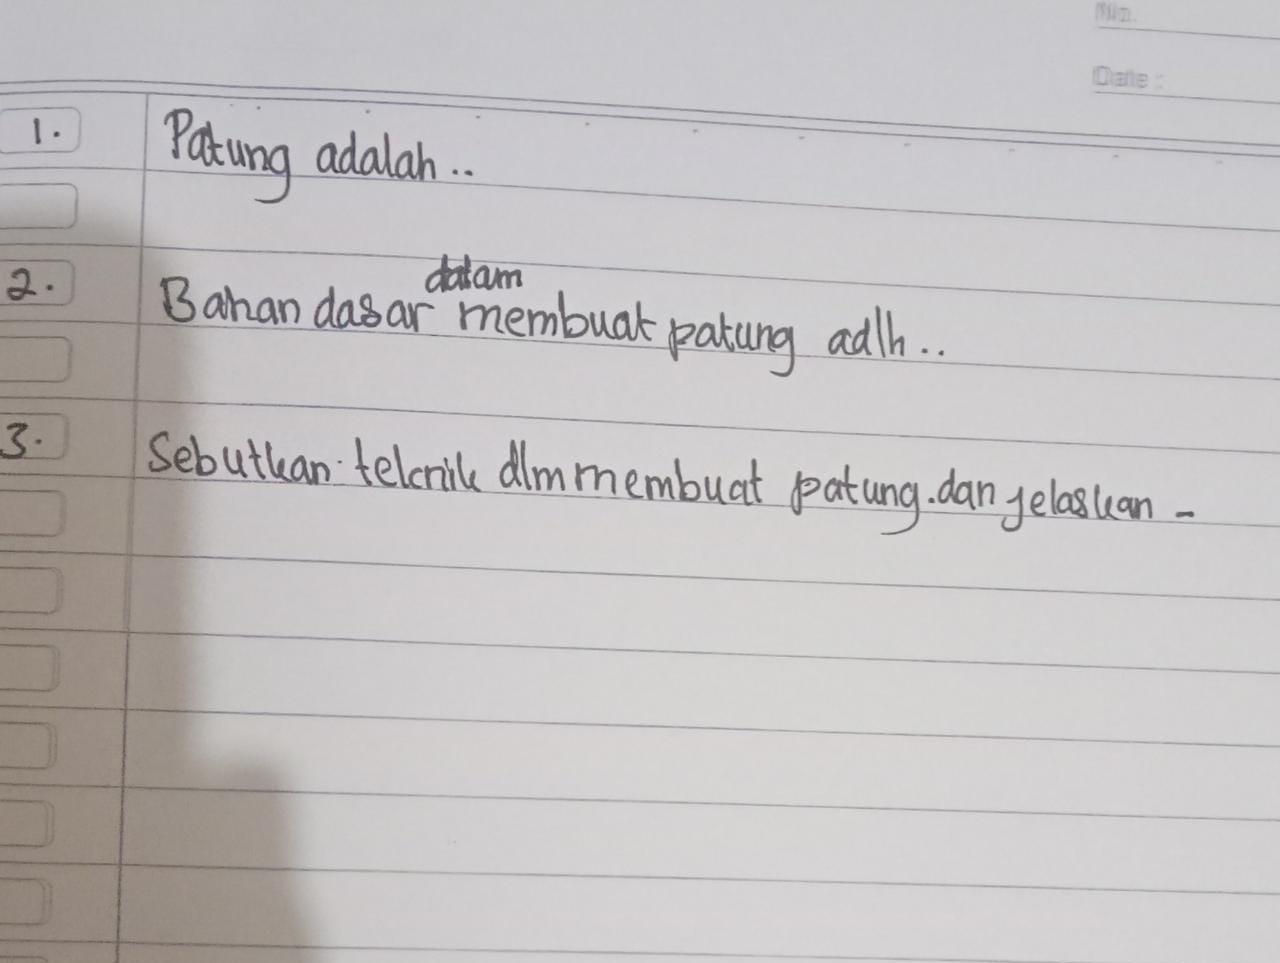 No.
Date :
1. Patung adalah..
2. Bahan dasar dalam membuat patung adlh..
3. Sebutkan teknik dlm membuat patung.dan jelaskan -